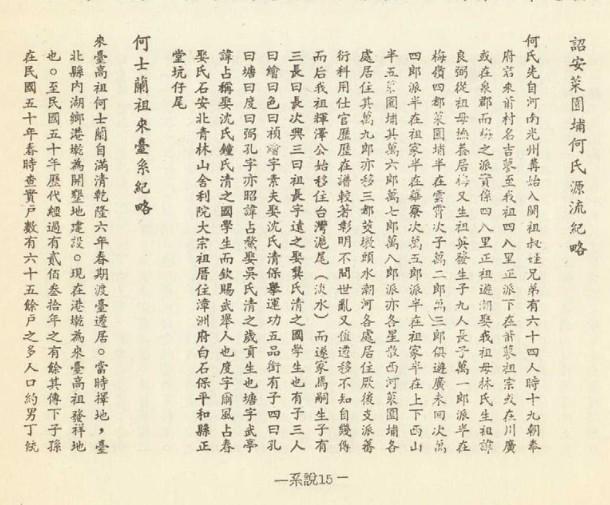 詔安菜圃埔何氏源流紀略
何氏先自河南光州冓始入閩祖叔姪兄弟有六十四人時十九朝奉
府宕來前村名吉蓼至我祖四八里正派下在前蓼祖宗或在川廣
或在泉郡而梅之派實係四八里正祖避潮娶我祖母林氏生祖諱
良弼從祖母撫養居梅又生祖英發生子九人長子萬一郎派半在
梅嶺四都菜圃埔半在雲霄次子萬二郎萬三郎俱避廣未回次萬
四郎派半在祖家半在蘇寮次萬五郎派半在祖家半在上下西山
半五菜圃埔其萬六郎萬七郎萬八郎派亦各星散西河菜圃埔各
處居住其萬九郎亦移三都茭墩頭水潮河各處居住厥後支派蕃
衍科用仕官歷歷在譜較著彰明不閱世亂又值遷移不知自幾傳
而后我祖輝澤公始移住台灣滬尾(淡水)而遂家焉嗣生子有
三長曰長次興三曰祖長字遠之娶龔氏清之國學生也有子三人
曰繪曰色曰禎繪字素夫娶沈氏清保舉運功五品銜有子四曰孔
曰塘曰度曰弼孔字亦昭諱占鰲娶吳氏清之歲貢生也塘字武亭
諱占稱娶沈氏鐘氏清之國學生而欽賜武舉人也度字爾風占春
娶氏石安北青林山舍利院大宗祖曆住漳洲府白石保平和縣正
堂坑仔尾
何士蘭祖來臺系紀略
來臺高祖何士蘭自滿清乾隆六年春期渡臺遷居。當時擇地,臺
北縣內湖鄉港墘為開墾地建設。現在港墘為來臺高祖發祥地
也。至民國五十年歷代經過有貳佰叁拾年之有餘其傳下子孫
在民國五十年春時查實戶數有六十五餘戶之多人口約男丁統
—系說15—